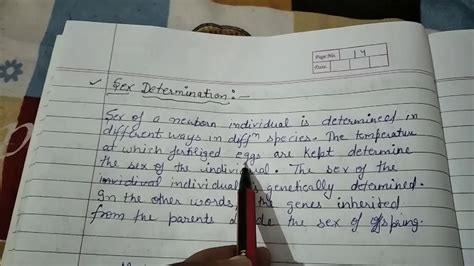 Page No. 14
Date
✓ Sex Determination:-
Sex of a newborn individual is determined in
different ways in diffn species. The temperature
at which fertilized eggs are kept determine
the sex of the individual. The sex of the
individual is genetically determined.
In the other words, the genes inherited
from the parents decide the sex of offspring.